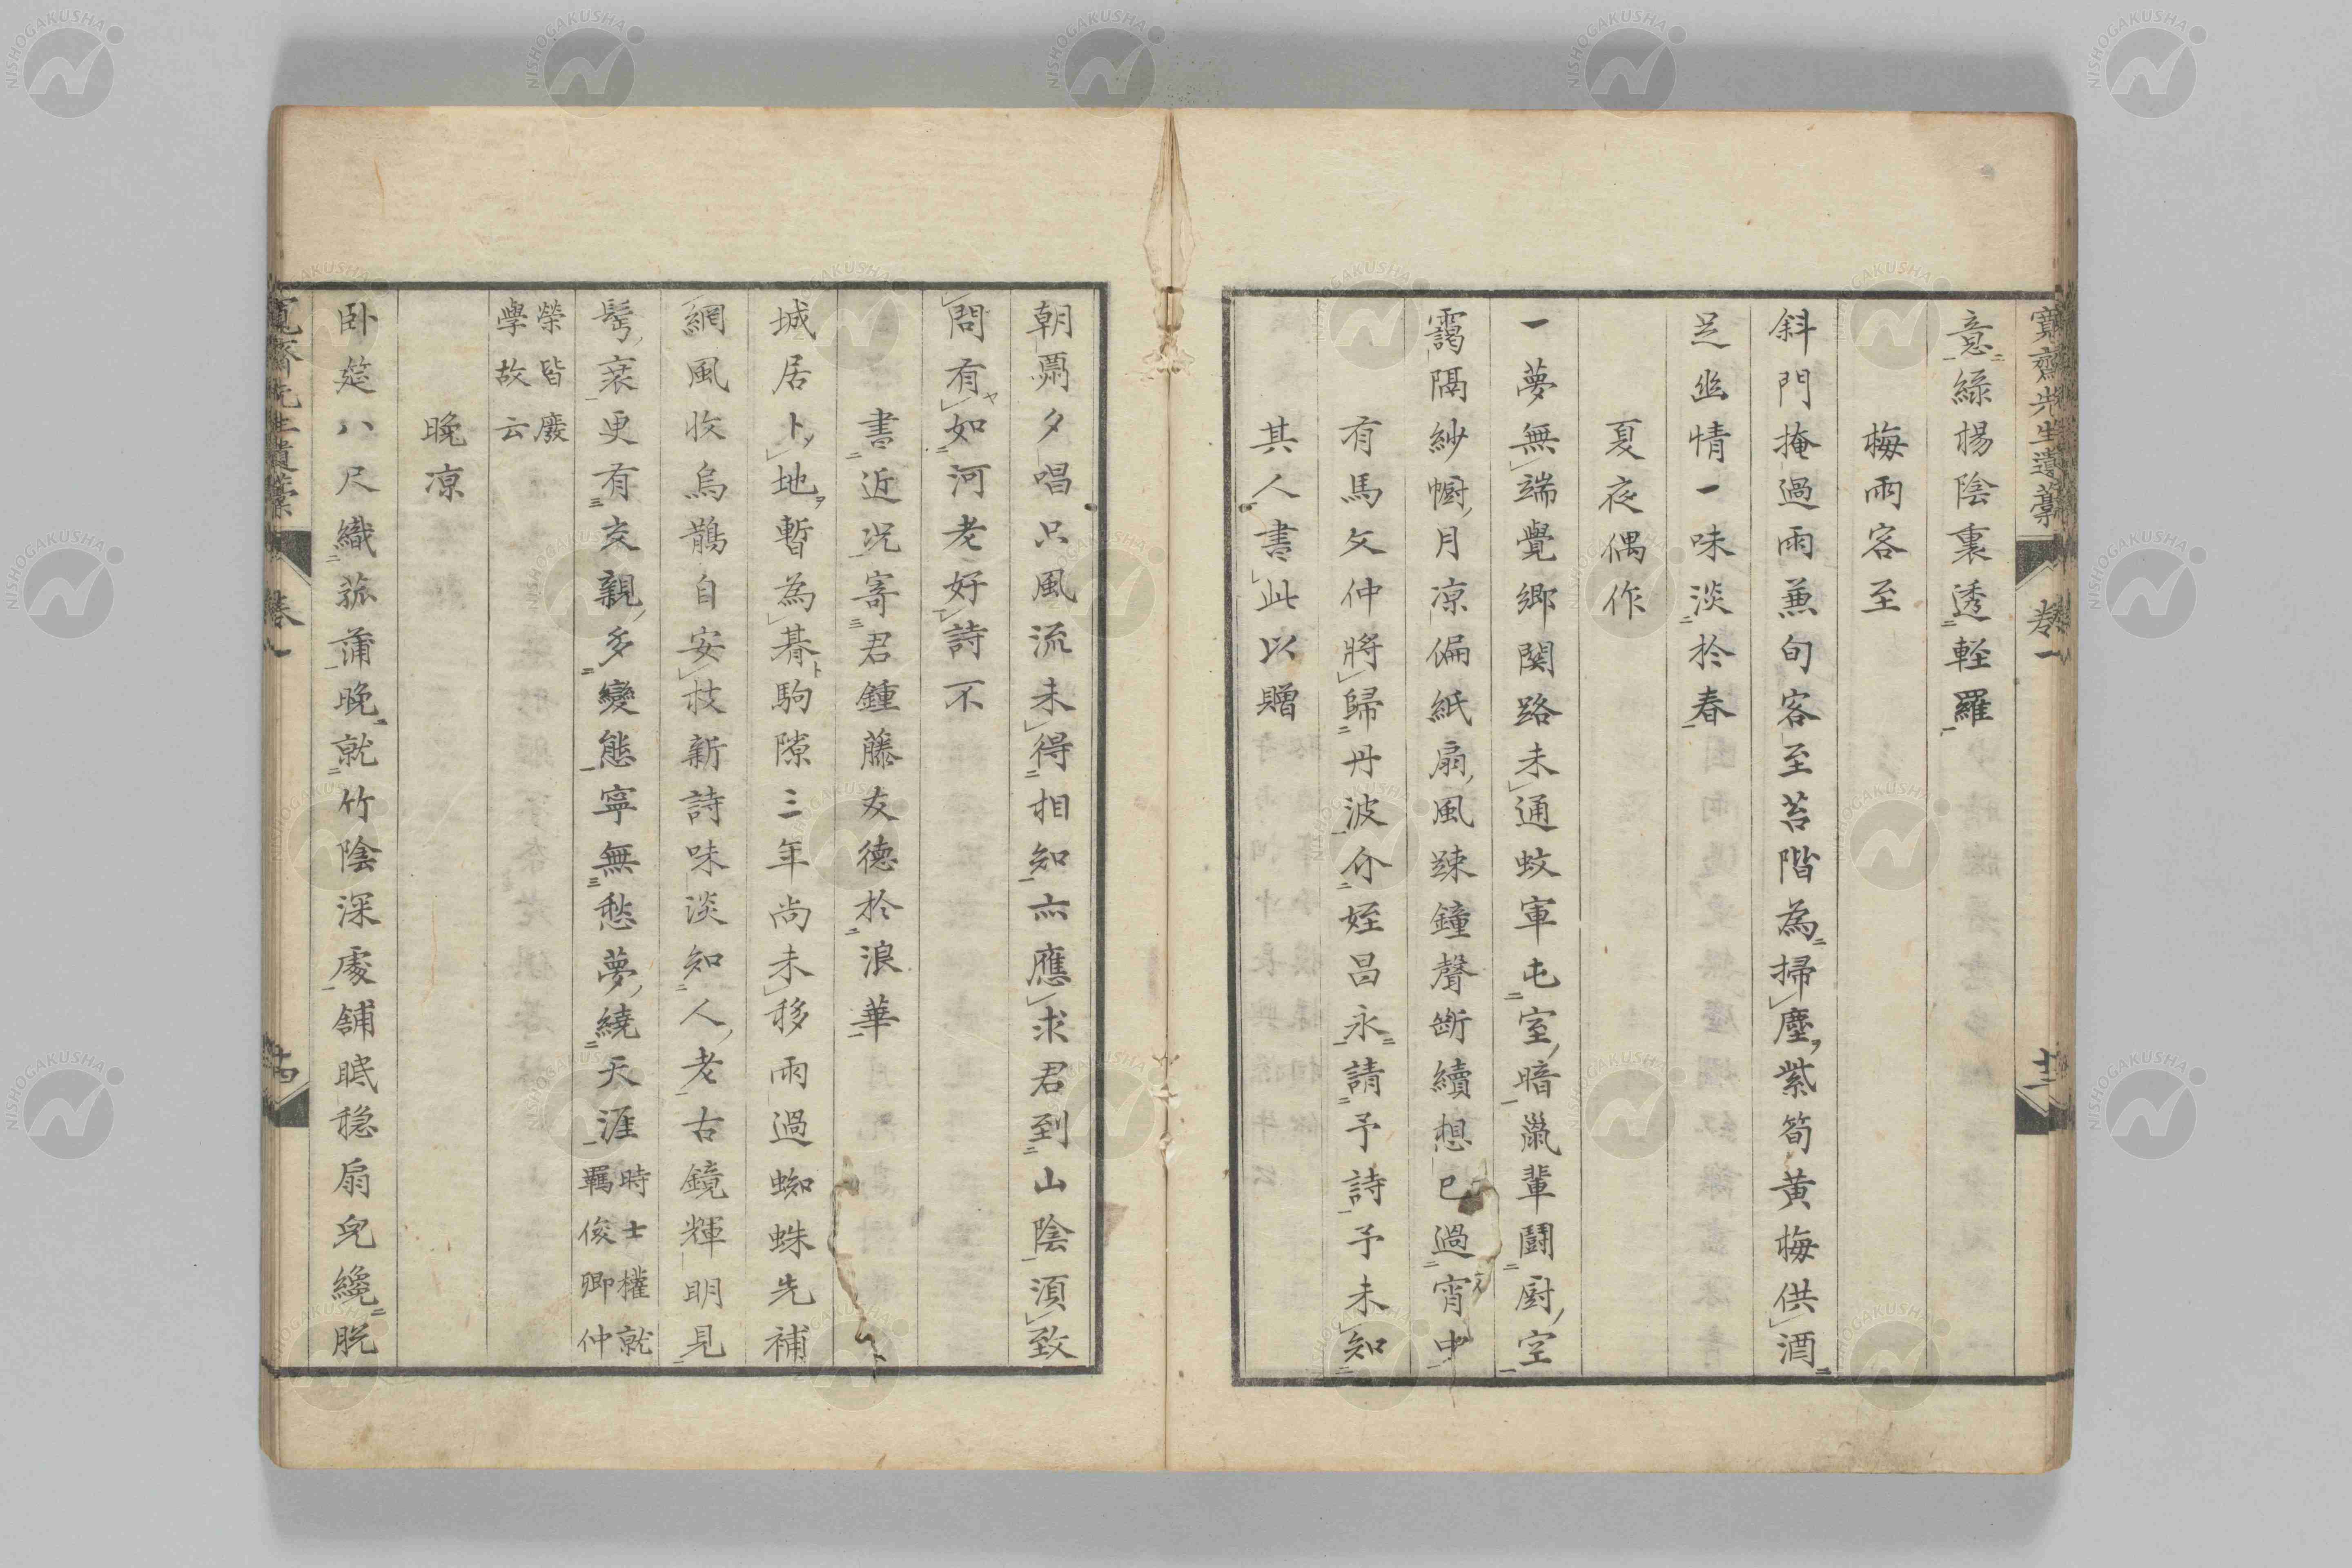 寬齋先生遺藁 卷一 十三
意綠楊陰裏透輕羅
梅雨客至
斜門掩過雨兼旬客至苔階為掃塵紫筍黃梅供酒
足幽情一味淡於春
夏夜偶作
一夢無端覺鄉関路未通蚊軍屯室暗鼠輩鬪厨空
靄隔紗幮月凉偏紙扇風踈鐘聲斷續想已過宵中
有馬文仲將歸丹波介姪昌永請予詩予未知
其人書此以贈
朝鬻夕唱只風流未得相知亦應求君到山陰須致
問有如河老好詩不
書近况寄君鍾藤友德於浪華
城居卜地暫為碁駒隙三年尚未移雨過蜘蛛先補
網風收烏鵲自安枝新詩味淡知人老古鏡輝明見
髩衰更有交親多變態寧無愁夢繞天涯時士權就羈俊卿仲
榮皆廢學故云
晚凉
卧筵八尺織菰蒲晚就竹陰深處舖眠穏扇兒纔脫
寬齋先生遺藁 卷一 十四
NISHOGAKUSHA